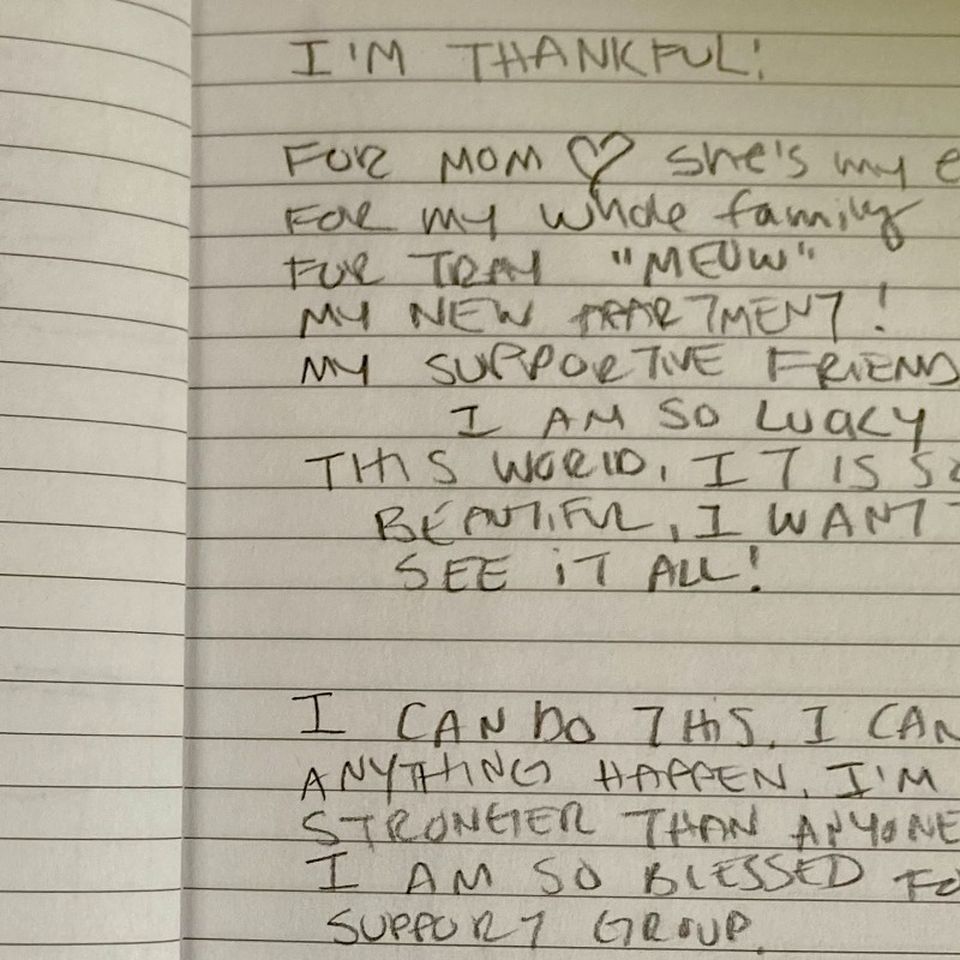 I'M THANKFUL!
FOR MOM ♡ She's my e
FOR my whole family
FOR TRAY "MEOW"
MY NEW APARTMENT!
MY SUPPORTIVE FRIENDS
I AM SO LUCKY
THIS WORLD, IT IS SO
BEAUTIFUL, I WANT T
SEE IT ALL!
I CAN DO THIS. I CAN
ANYTHING HAPPEN. I'M
STRONGER THAN ANYONE
I AM SO BLESSED FO
SUPPORT GROUP.